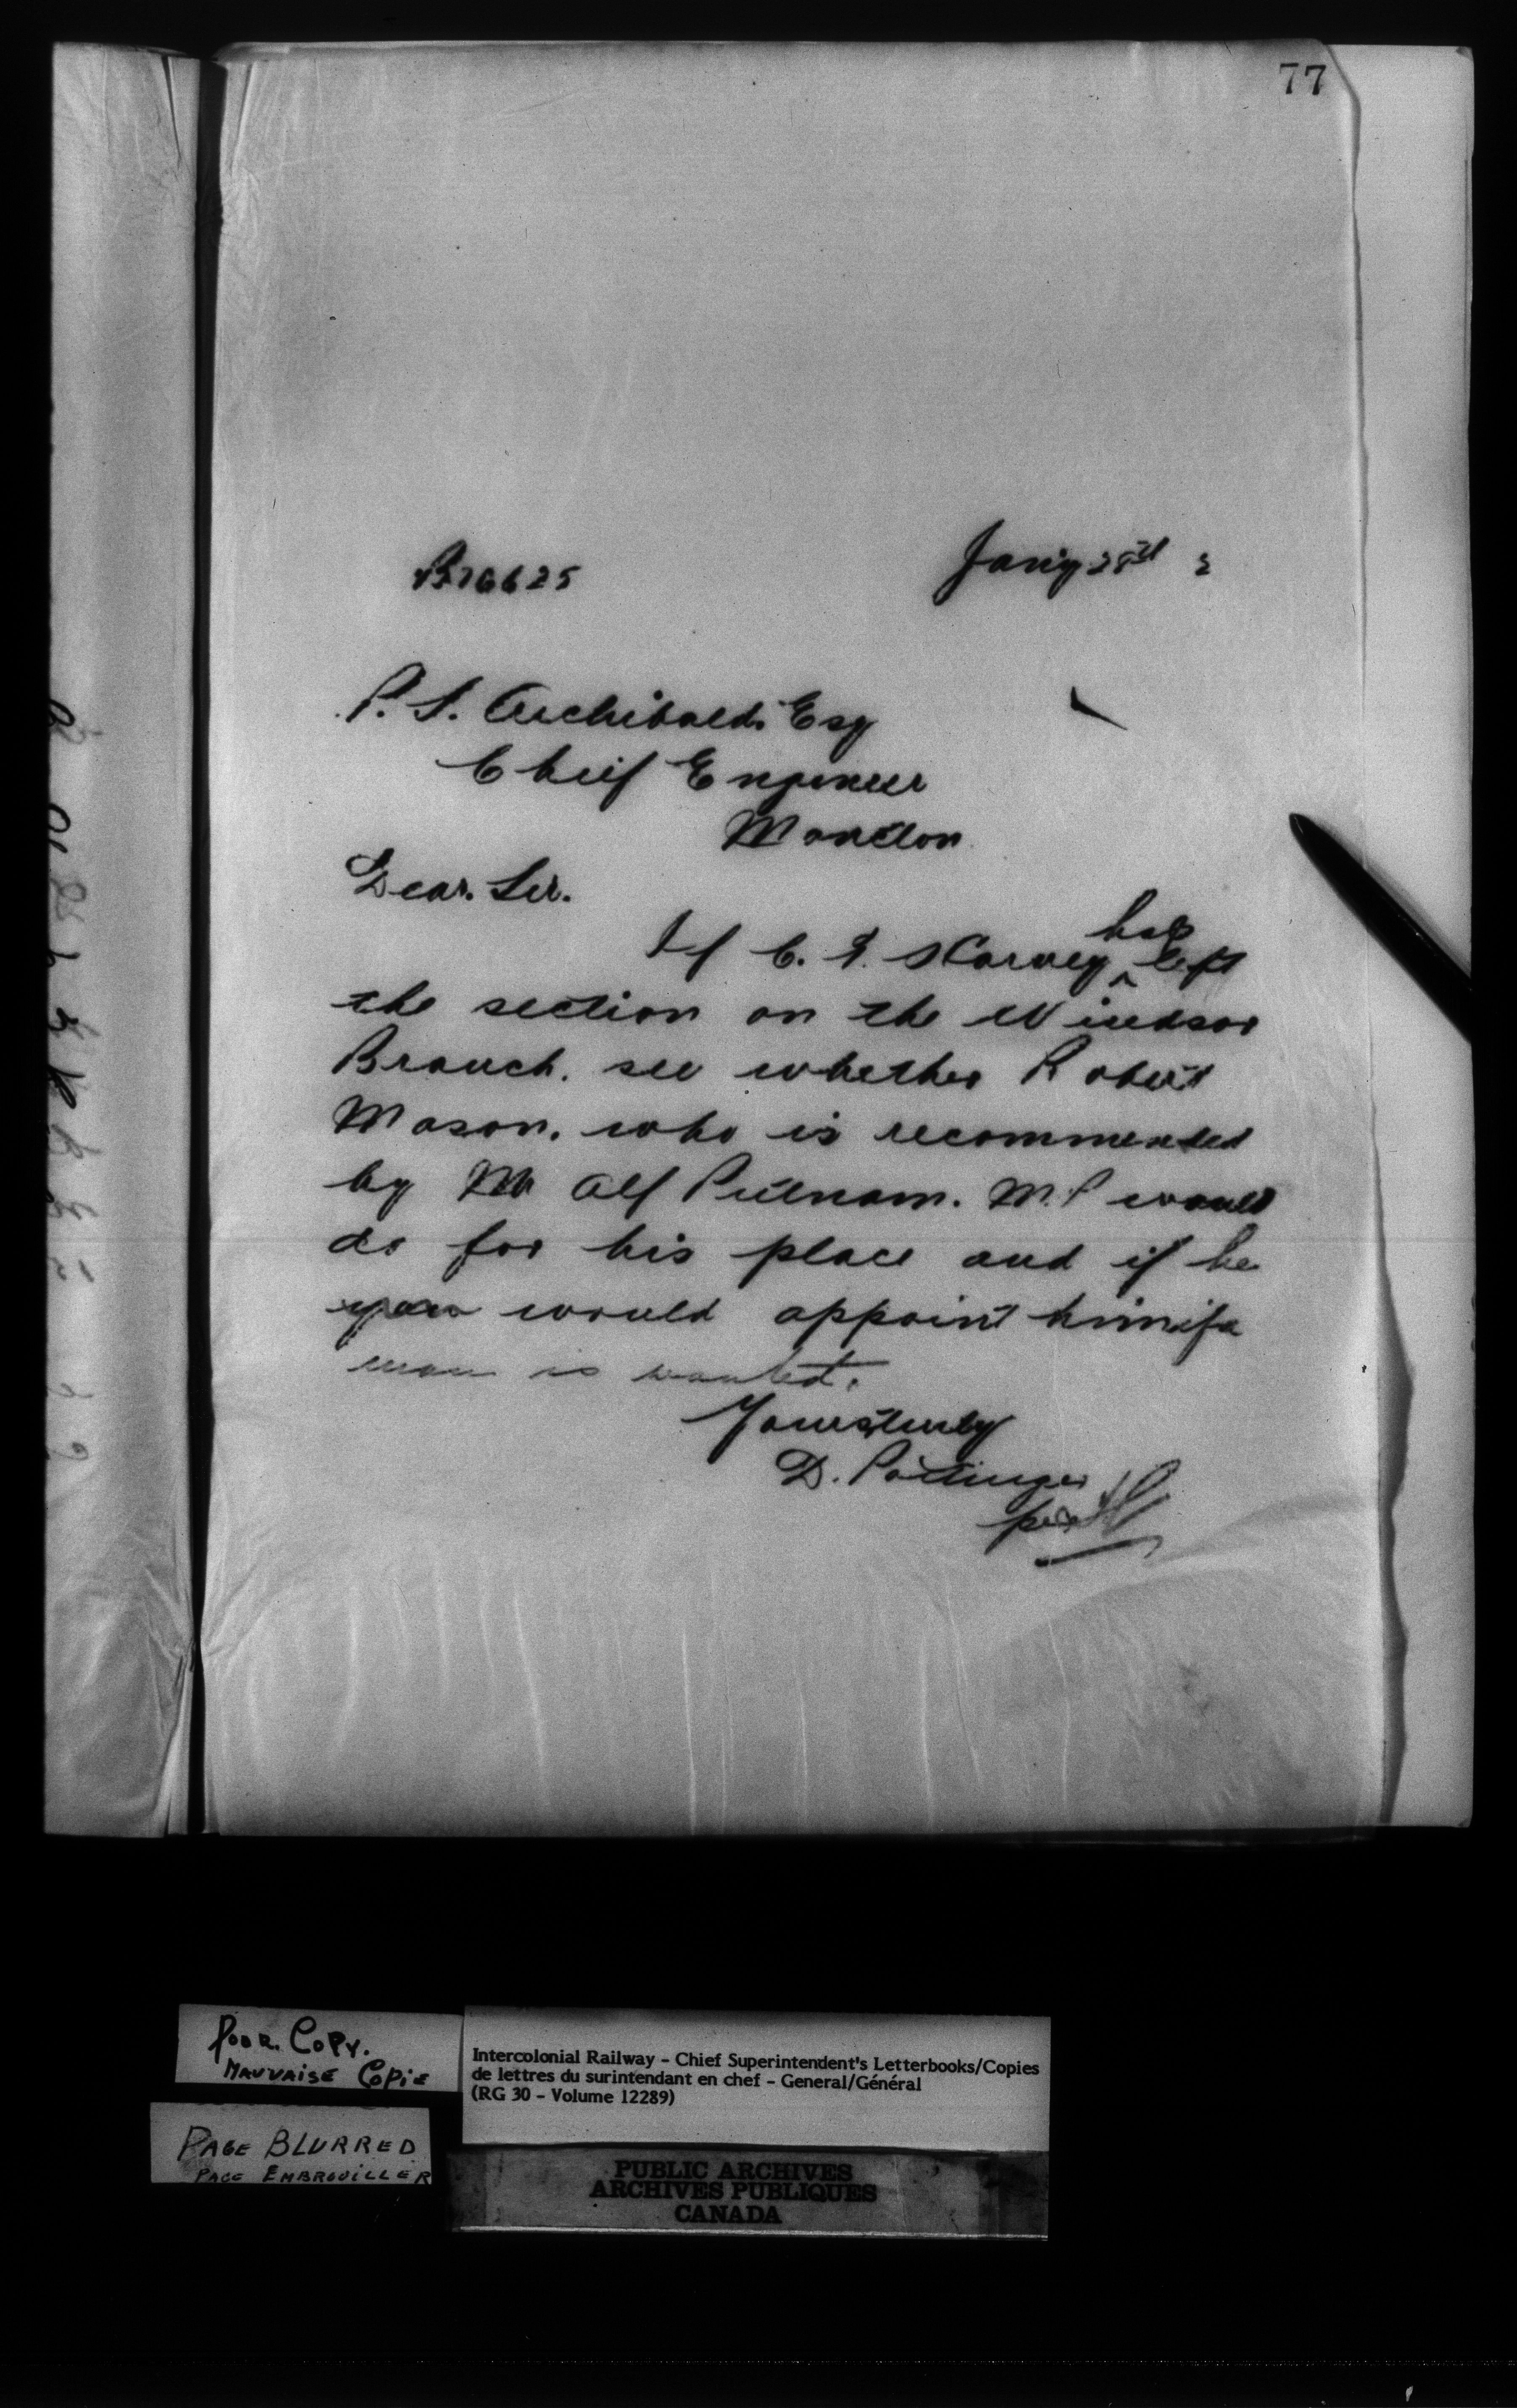 77
B26625
Jany 28th 2
P. S. Archibald. Esq
Chief Engineer
Moncton
Dear. Sir.
If C. I. Harvey has left
the section on the Windsor
Branch. see whether Robert
Mason. who is recommended
by Mr Alf Putnam. M.P would
do for his place and if he
would appoint him if a
man is wanted.
Yours truly
D. Pottinger
per
Poor Copy.
Mauvaise Copie
Page Blurred
Page Embrouiller
Intercolonial Railway - Chief Superintendent's Letterbooks/Copies
de lettres du surintendant en chef - General/Général
(RG 30 - Volume 12289)
PUBLIC ARCHIVES
ARCHIVES PUBLIQUES
CANADA